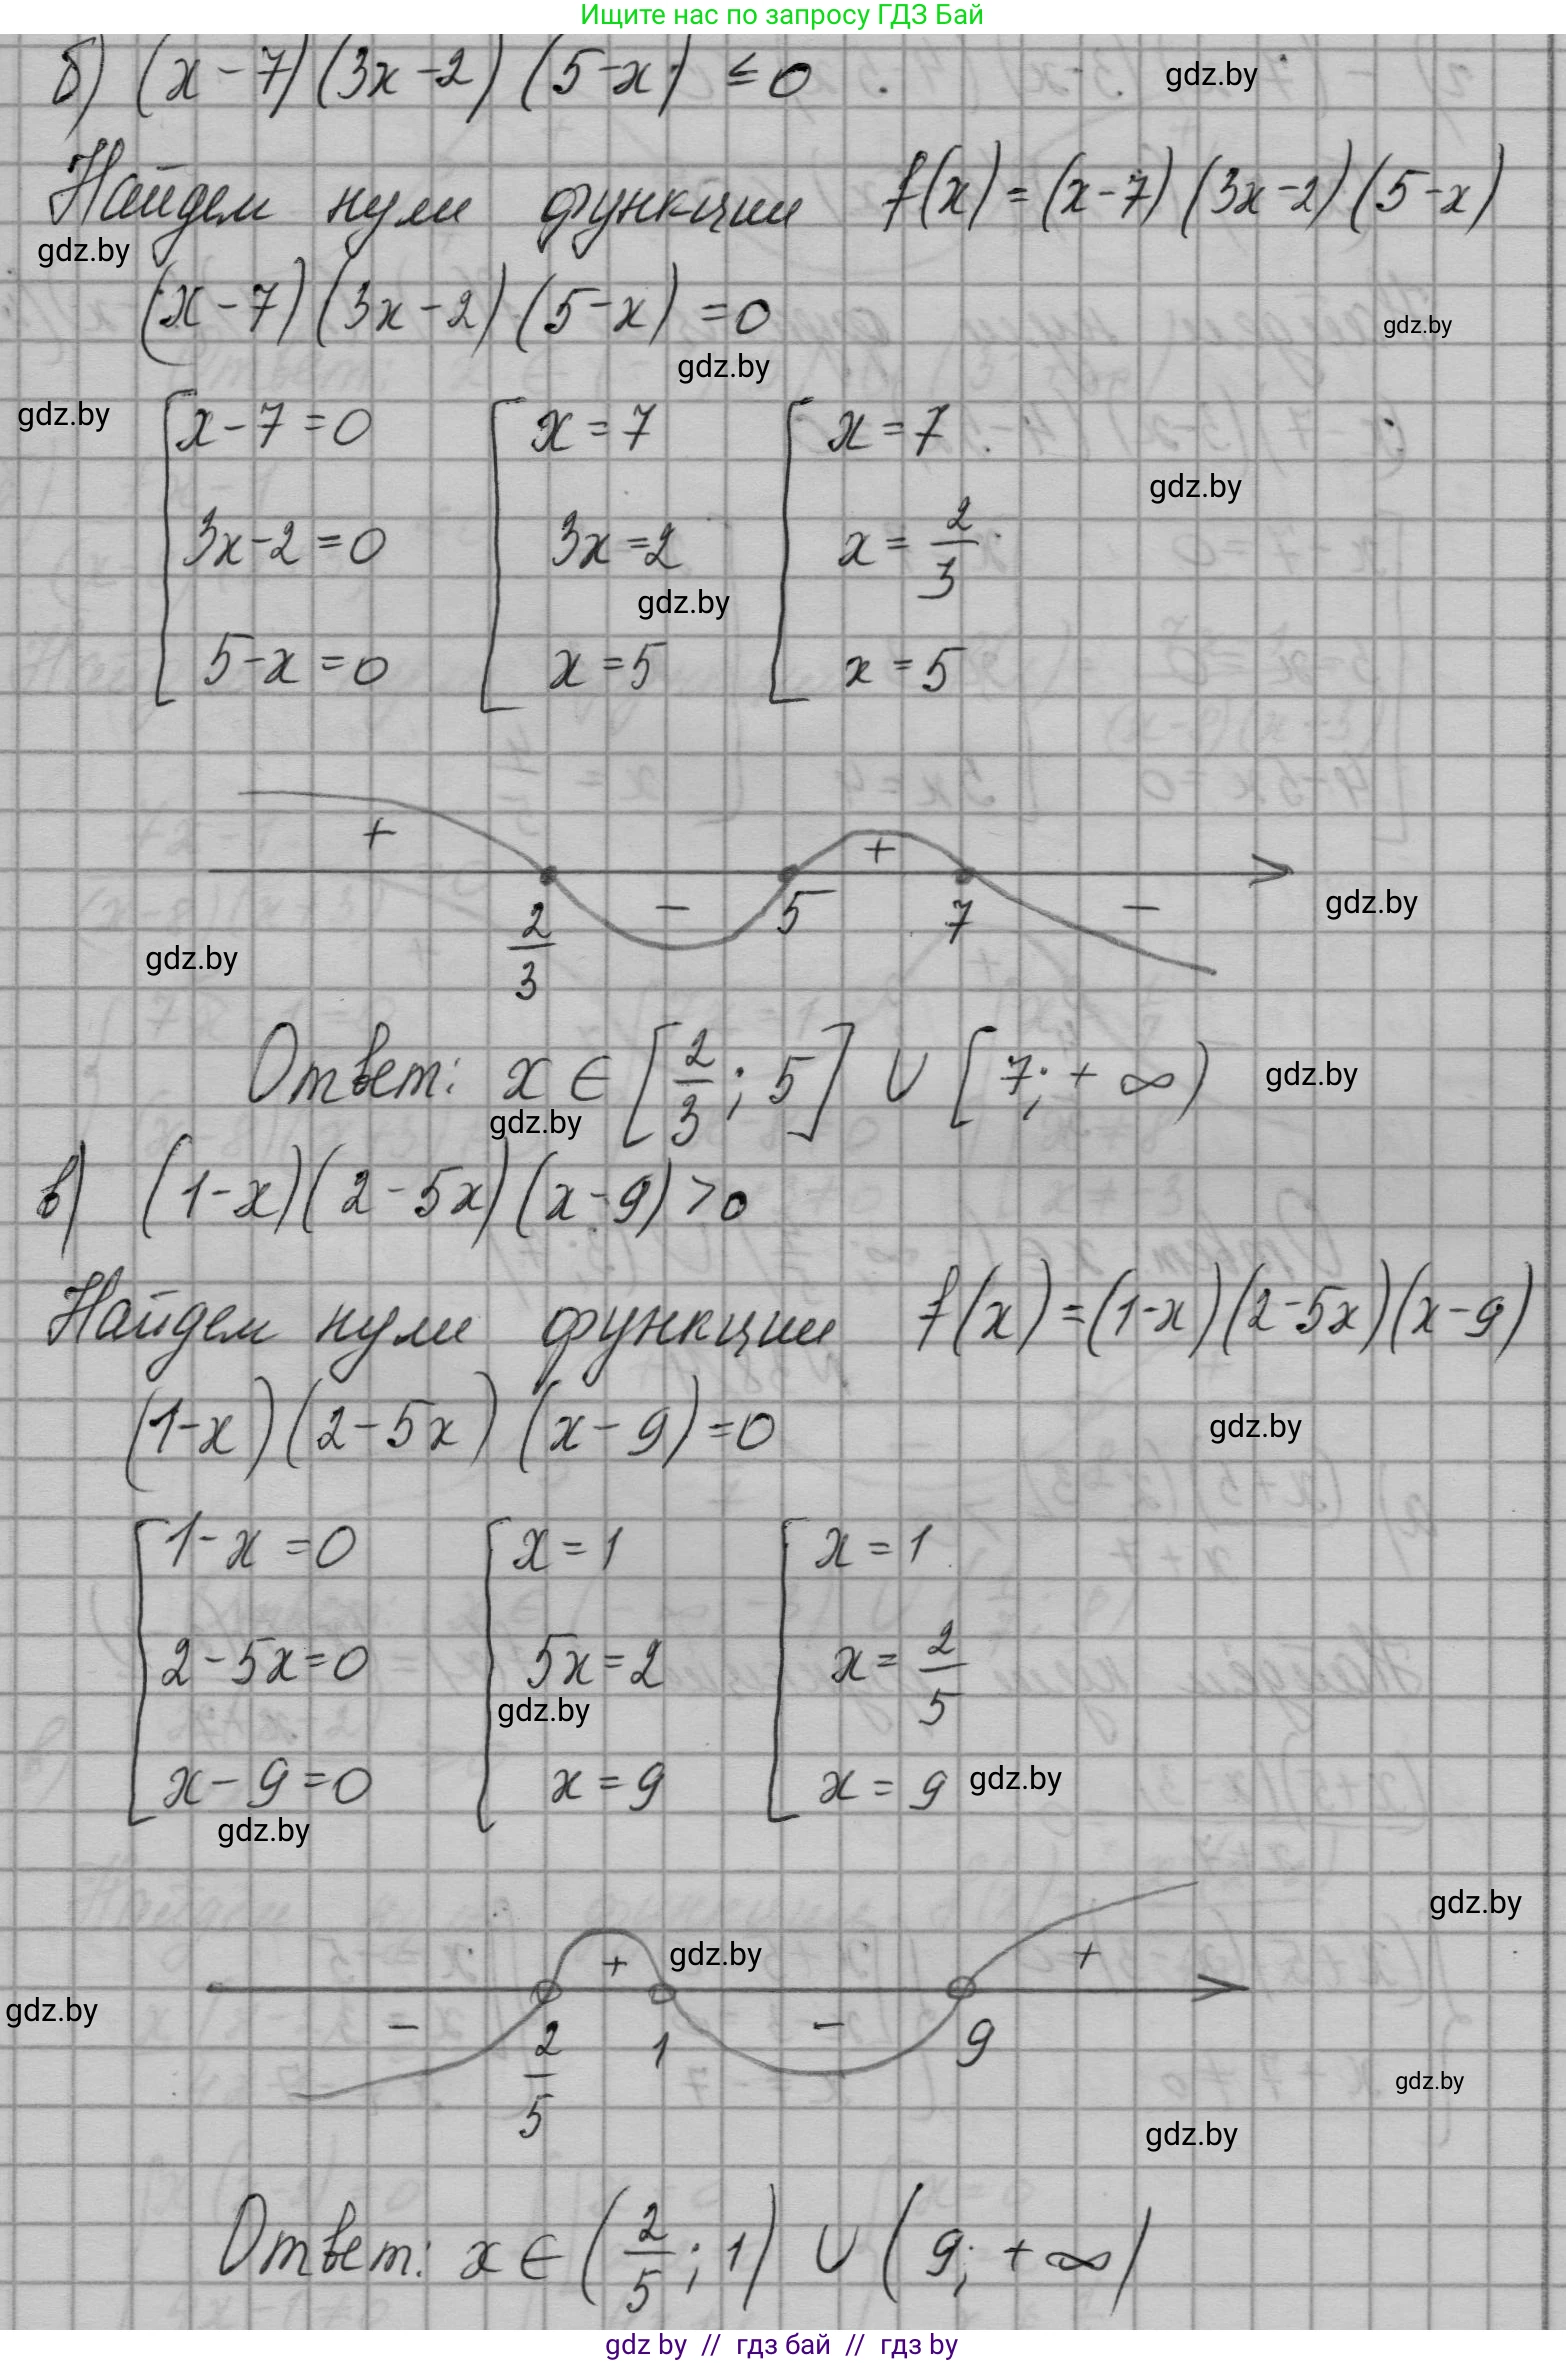 Ищите нас по запросу ГДЗ Бай
б) (x-7)(3x-2)(5-x) ≤ 0
gdz.by
Найдем нули функции f(x)=(x-7)(3x-2)(5-x)
gdz.by
(x-7)(3x-2)(5-x)=0
gdz.by
gdz.by
gdz.by
[x-7=0 [x=7 [x=7
gdz.by
3x-2=0 3x=2 x=2/3
gdz.by
5-x=0 x=5 x=5
+ - + -
2/3 5 7
gdz.by
gdz.by
Ответ: x ∈ [2/3; 5] ∪ [7; +∞)
gdz.by
gdz.by
в) (1-x)(2-5x)(x-9)>0
Найдем нули функции f(x)=(1-x)(2-5x)(x-9)
(1-x)(2-5x)(x-9)=0
gdz.by
[1-x=0 [x=1 [x=1
2-5x=0 5x=2 x=2/5
gdz.by
x-9=0 x=9 x=9
gdz.by
gdz.by
gdz.by
+ gdz.by +
gdz.by
- -
2/5 1 9
gdz.by
gdz.by
Ответ: x ∈ (2/5; 1) ∪ (9; +∞)
gdz by // гдз бай // гдз by